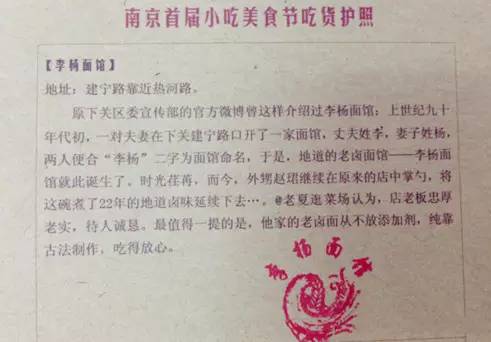 南京首届小吃美食节吃货护照
【李杨面馆】
地址：建宁路靠近热河路。
原下关区委宣传部的官方微博曾这样介绍过李杨面馆：上世纪九十
年代初，一对夫妻在下关建宁路口开了一家面馆，丈夫姓李，妻子姓杨，
两人便合“李杨”二字为面馆命名，于是，地道的老卤面馆——李杨面
馆就此诞生了。时光荏苒，而今，外甥赵珺继续在原来的店中掌勺，将
这碗煮了22年的地道卤味延续下去…。@老夏逛菜场认为，店老板忠厚
老实，待人诚恳。最值得一提的是，他家的老卤面从不放添加剂，纯靠
古法制作，吃得放心。
李杨面馆